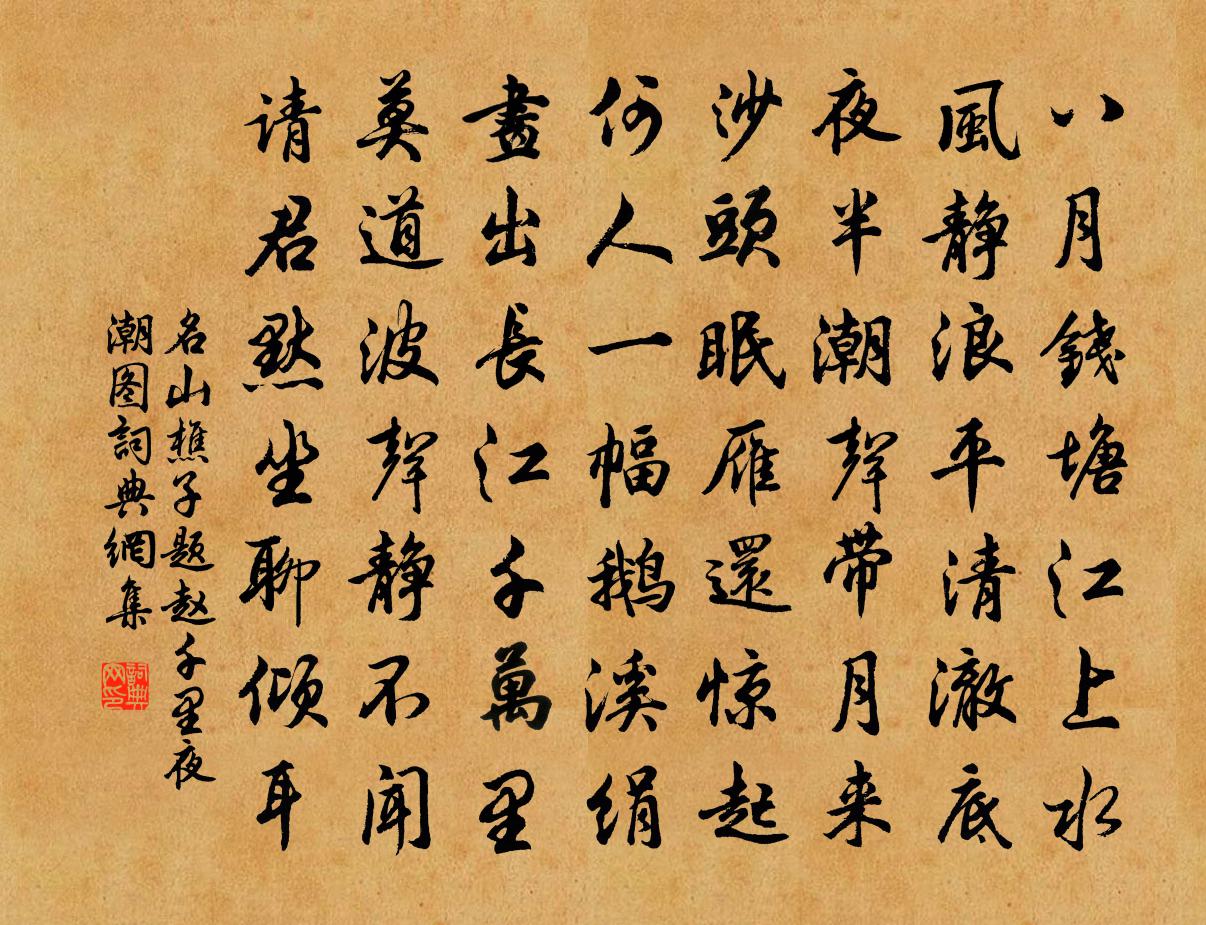 八月錢塘江上水
風静浪平清澈底
夜半潮聲带月来
沙頭眠雁還惊起
何人一幅鹅溪绢
畫出長江千萬里
莫道波聲静不闻
请君默坐聊倾耳
名山樵子题赵千里夜
潮图詞典網集
詞典网印